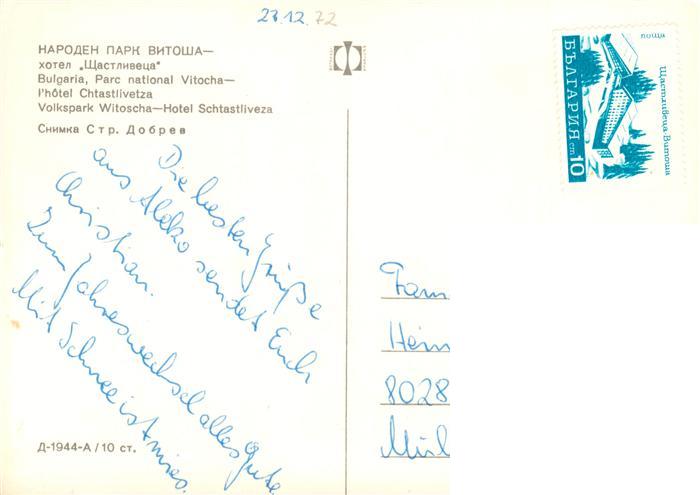 23.12.72
НАРОДЕН ПАРК ВИТОША—
хотел „Щастливеца"
Bulgaria, Parc national Vitocha—
l'hôtel Chtastlivetza
Volkspark Witoscha—Hotel Schtastliveza
Снимка Стр. Добрев
Die besten Grüße
aus Aleko sendet Euch
Christian.
Zum Jahreswechsel alles Gute.
Mit Schnee ist mies.
Д-1944-А / 10 ст.
поща
Щастливеца-Витоша
БЪЛГАРИЯ ст 10
Fam
Hein
8028